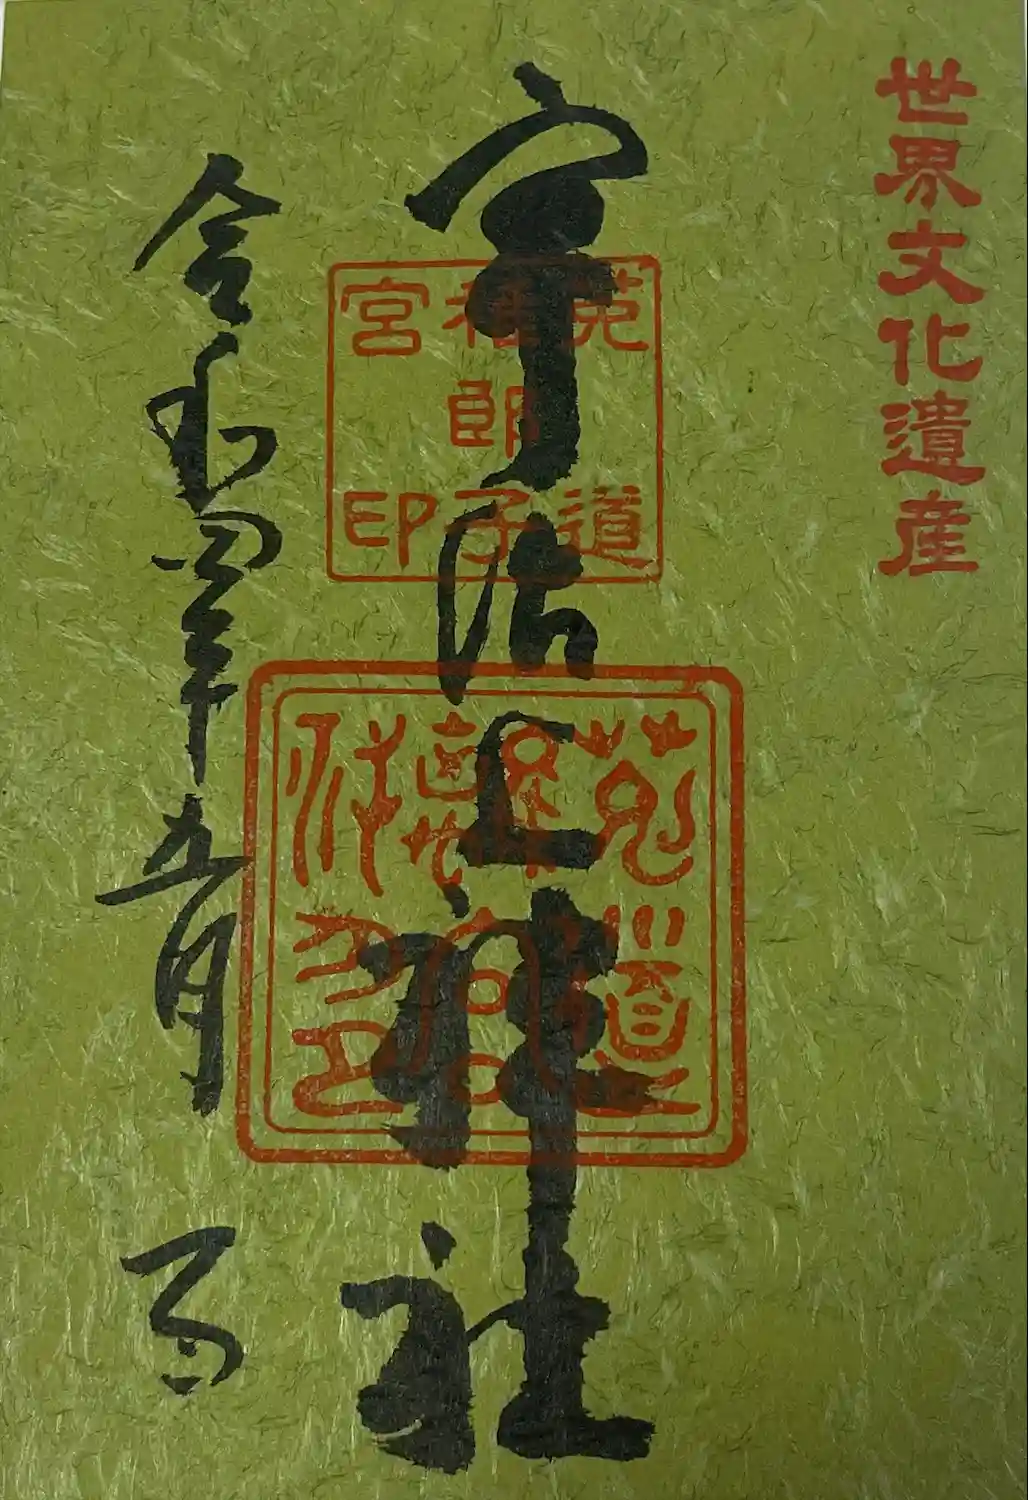 世界文化遺産
宇治上神社
菟道
稚郎子
宮印
令和四年五月 日